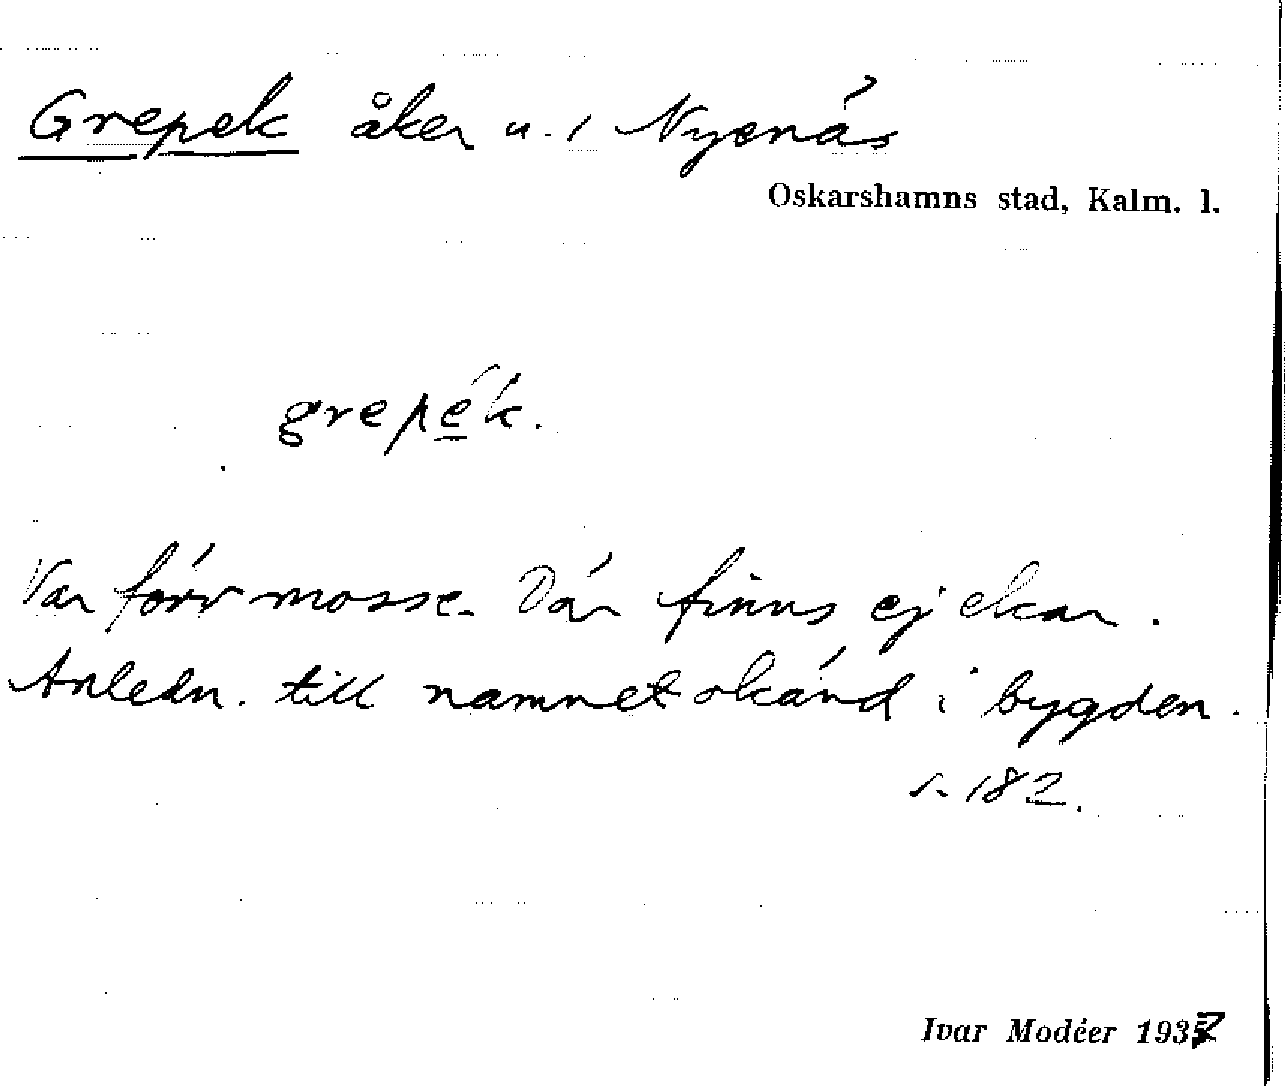 Grepek åker u. / Nyenäs
Oskarshamns stad, Kalm. l.
grepék.
Var förr mosse. Där finns ej ekar.
Anledn. till namnet okänd i bygden.
s. 182.
Ivar Modéer 1937